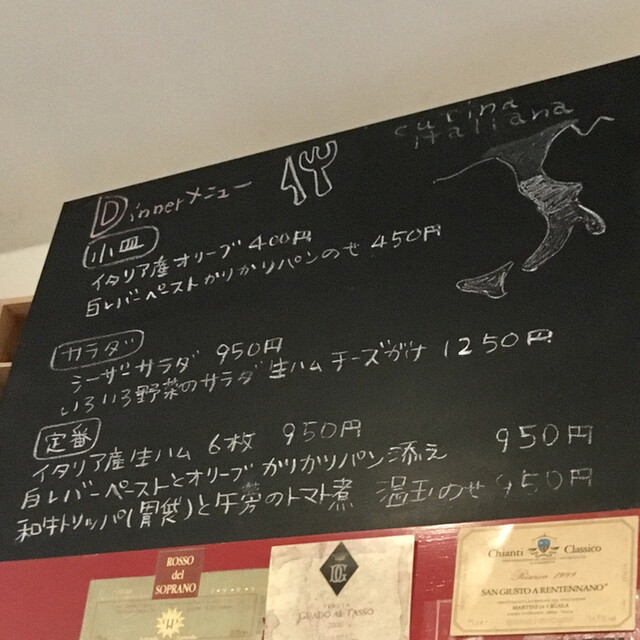 cucina
italiana
Dinnerメニュー
小皿
イタリア産オリーブ 400円
白レバーペーストガリガリパンのせ 450円
サラダ
シーザーサラダ 950円
いろいろ野菜のサラダ 生ハムチーズがけ 1250円
定番
イタリア産生ハム 6枚 950円
白レバーペーストとオリーブ ガリガリパン添え 950円
和牛トリッパ(胃袋)と牛蒡のトマト煮 温玉のせ 950円
ROSSO
del
SOPRANO
DG
GUADO AL TASSO
Chianti Classico
Riserva 1999
SAN GIUSTO A RENTENNANO
MARTINI DI CIGALA